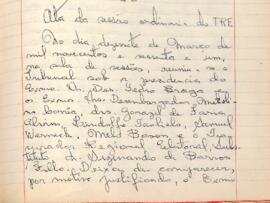 Ata da sessão ordinaria do TRE
No dia dezesete de Março de
mil novecentos e sessenta e um,
na sala de sessões, reuniu-se o
Tribunal sob a presidencia do
Exmo. Sr. Des. Pedro Braga e
os Exmos. Srs. Desembargador
drs. Gonzaga de Faria
Alvim, Lindolfo Samuel
Werneck, Melo e o
curador Regional Eleitoral, Subs-
tituto, dr. Sizinando de Barros
Filho. Deixou de comparecer,
por motivo justificado, o Exmo